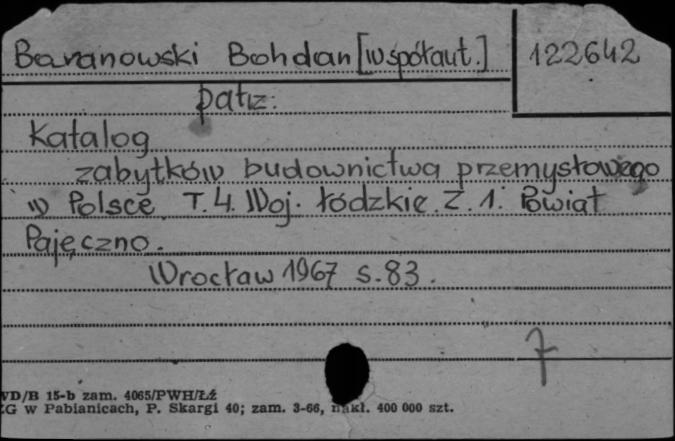 Baranowski Bohdan [współaut.] 122642
patrz:
Katalog
zabytków budownictwa przemysłowego
w Polsce T.4. Woj. łódzkie. Z. 1. Powiat
Pajęczno.
Wrocław 1967 s. 83.
7
WD/B 15-b zam. 4065/PWH/Łź
ZG w Pabianicach, P. Skargi 40; zam. 3-66, nakł. 400 000 szt.